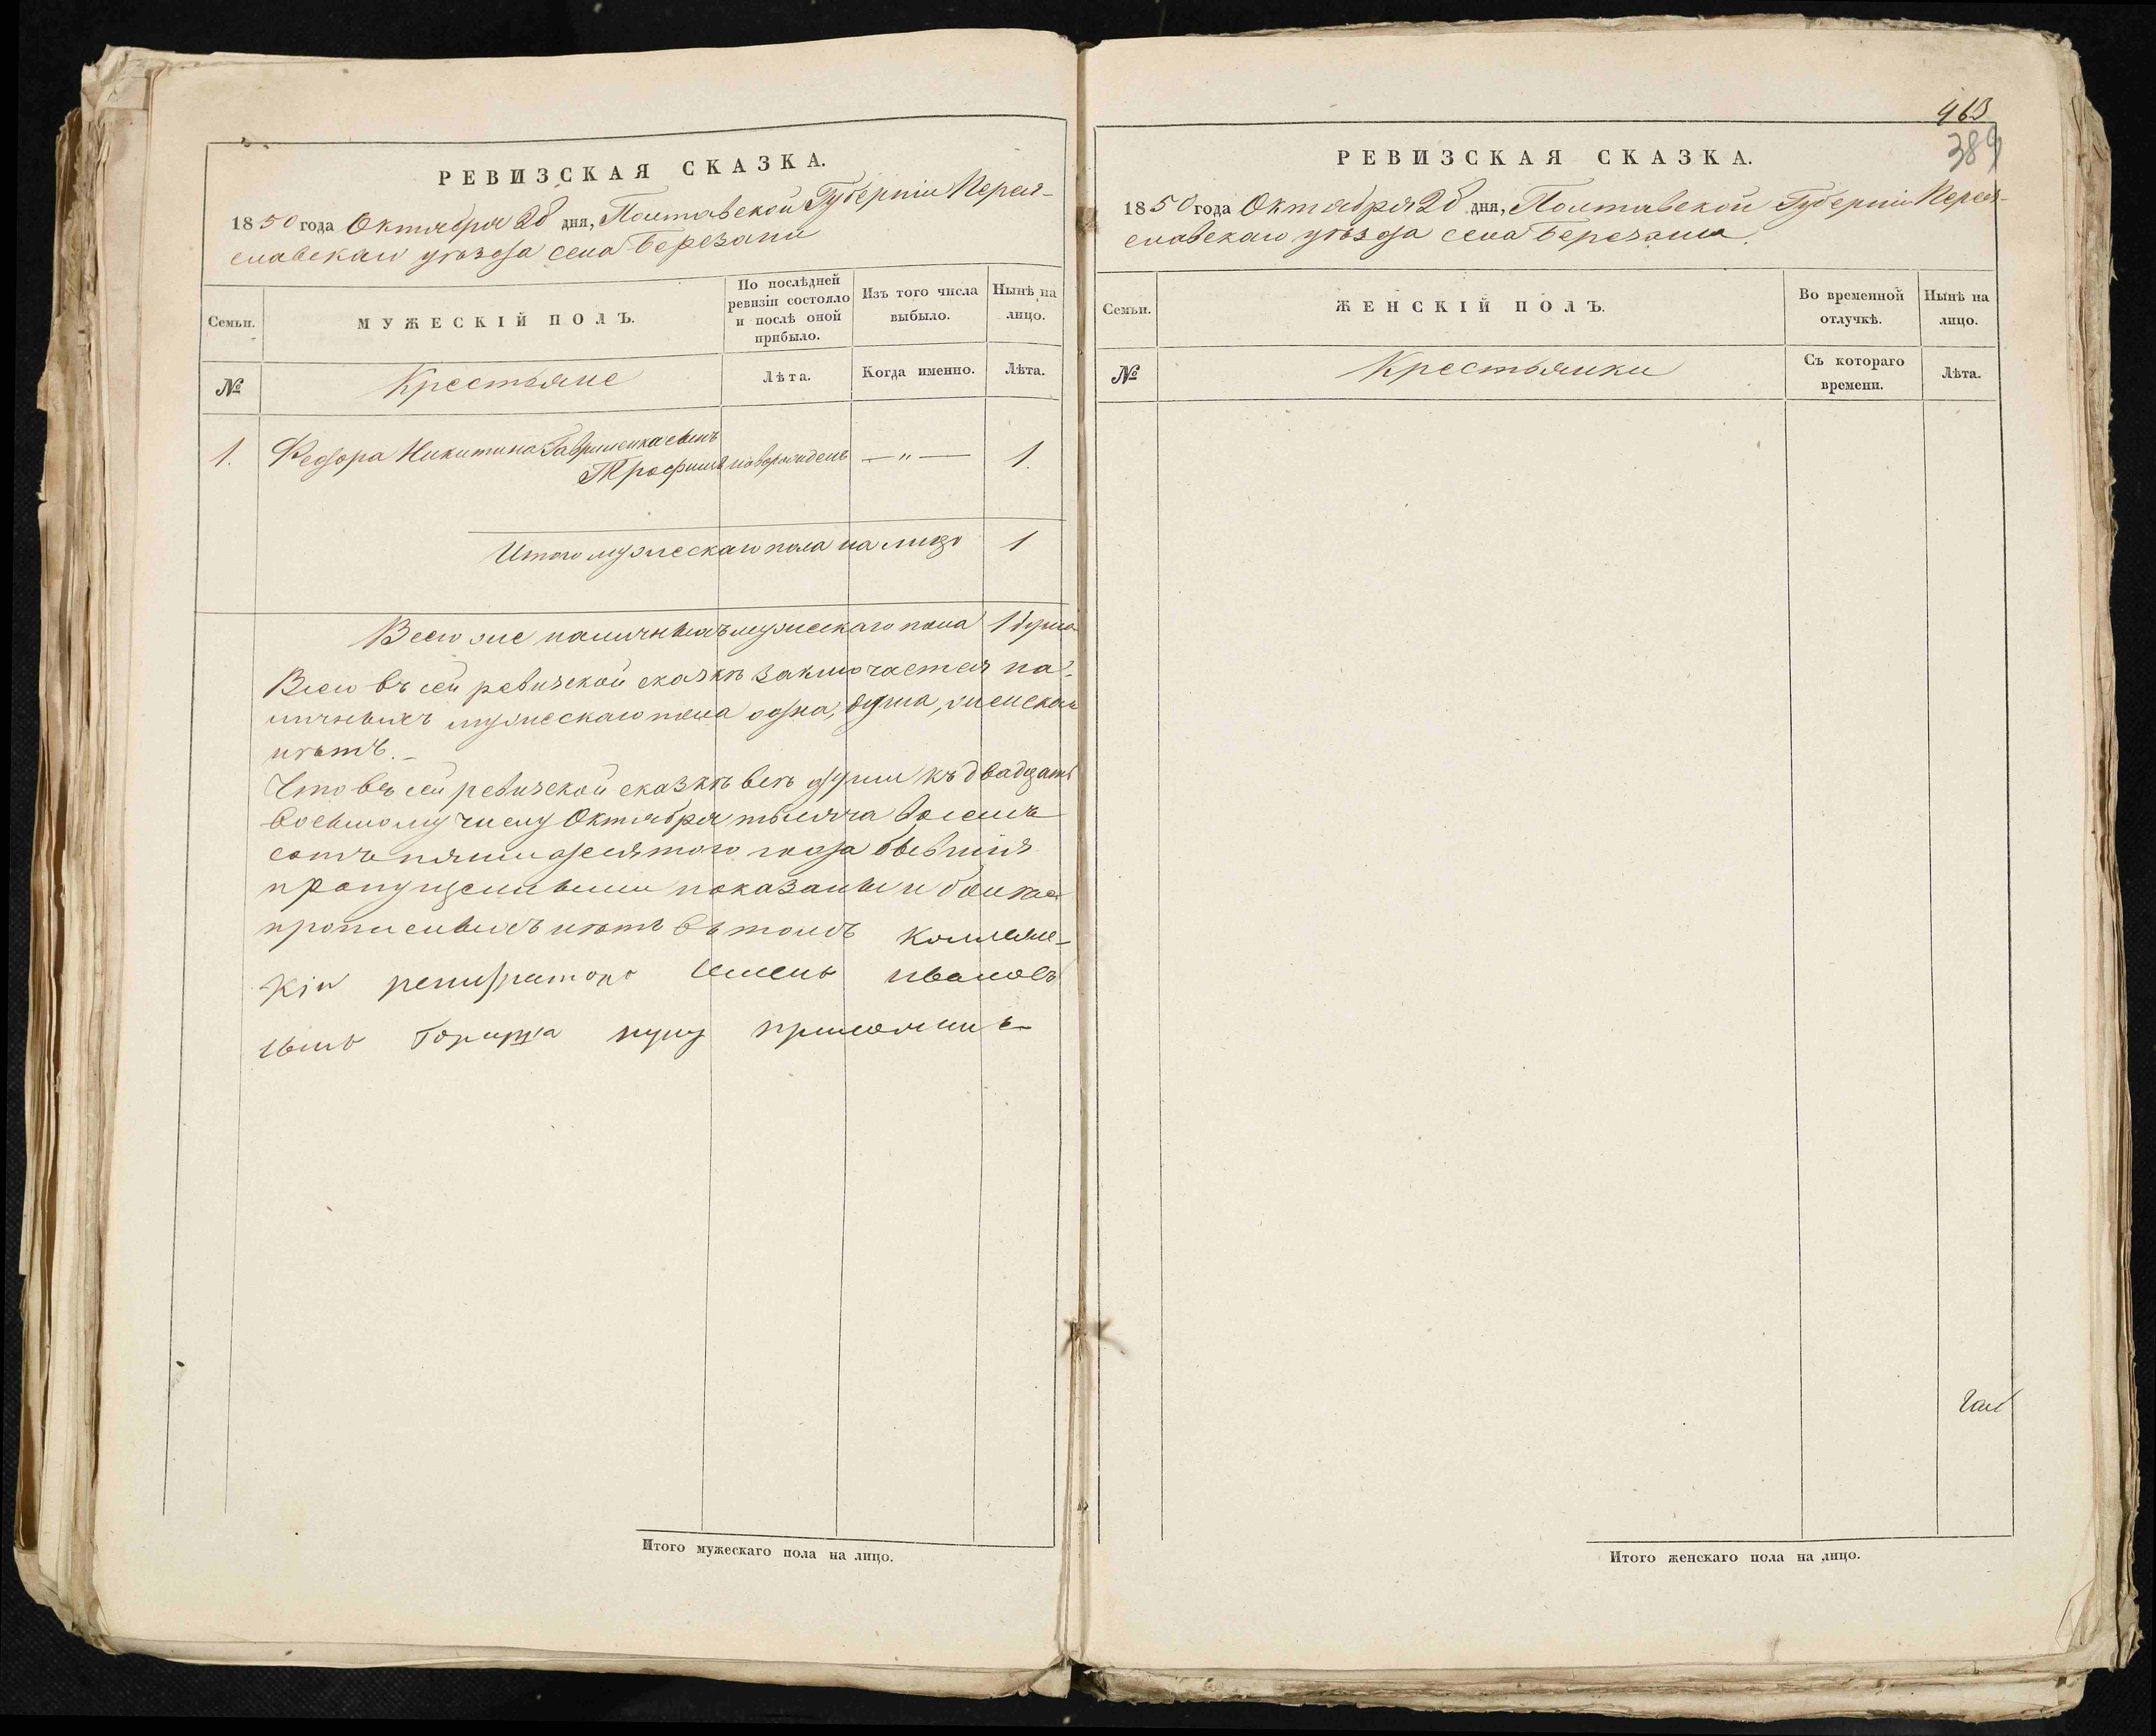 РЕВИЗСКАЯ СКАЗКА.
1850 года Октября 28 дня, Полтавской Губерніи Перея-
славскаго уѣзда села Березани
Семьи.
МУЖЕСКІЙ ПОЛЪ.
По послѣдней ревизіи состояло и послѣ оной прибыло.
Изъ того числа выбыло.
Нынѣ на лицо.
№
Крестьяне
Лѣта.
Когда именно.
Лѣта.
1. Федора Никитина Гавриленка сынъ
Трофимъ новорожденъ — „ — 1.
Итого мужескаго пола на лицо 1
Всего же наличныхъ мужескаго пола 1 душа
Всего въ сей ревизской сказкѣ заключается на-
личныхъ мужескаго пола одна, душа, женскаго
нѣтъ.
Что въ сей ревизской сказкѣ всѣ души къ двадцать
восьмому числу Октября тысяча восемь
сотъ пятидесятого года бывшія
пропущенными показаны и болѣе
прописныхъ нѣтъ въ томъ Коллеж-
кій регистраторъ Семенъ Ивановъ
сынъ руку приложилъ
Итого мужескаго пола на лицо.
463
389
РЕВИЗСКАЯ СКАЗКА.
1850 года Октября 28 дня, Полтавской Губерніи Перея-
славскаго уѣзда села Березани.
Семьи.
ЖЕНСКІЙ ПОЛЪ.
Во временной отлучкѣ.
Нынѣ на лицо.
№
Крестьянки
Съ котораго времени.
Лѣта.
Итого женскаго пола на лицо.